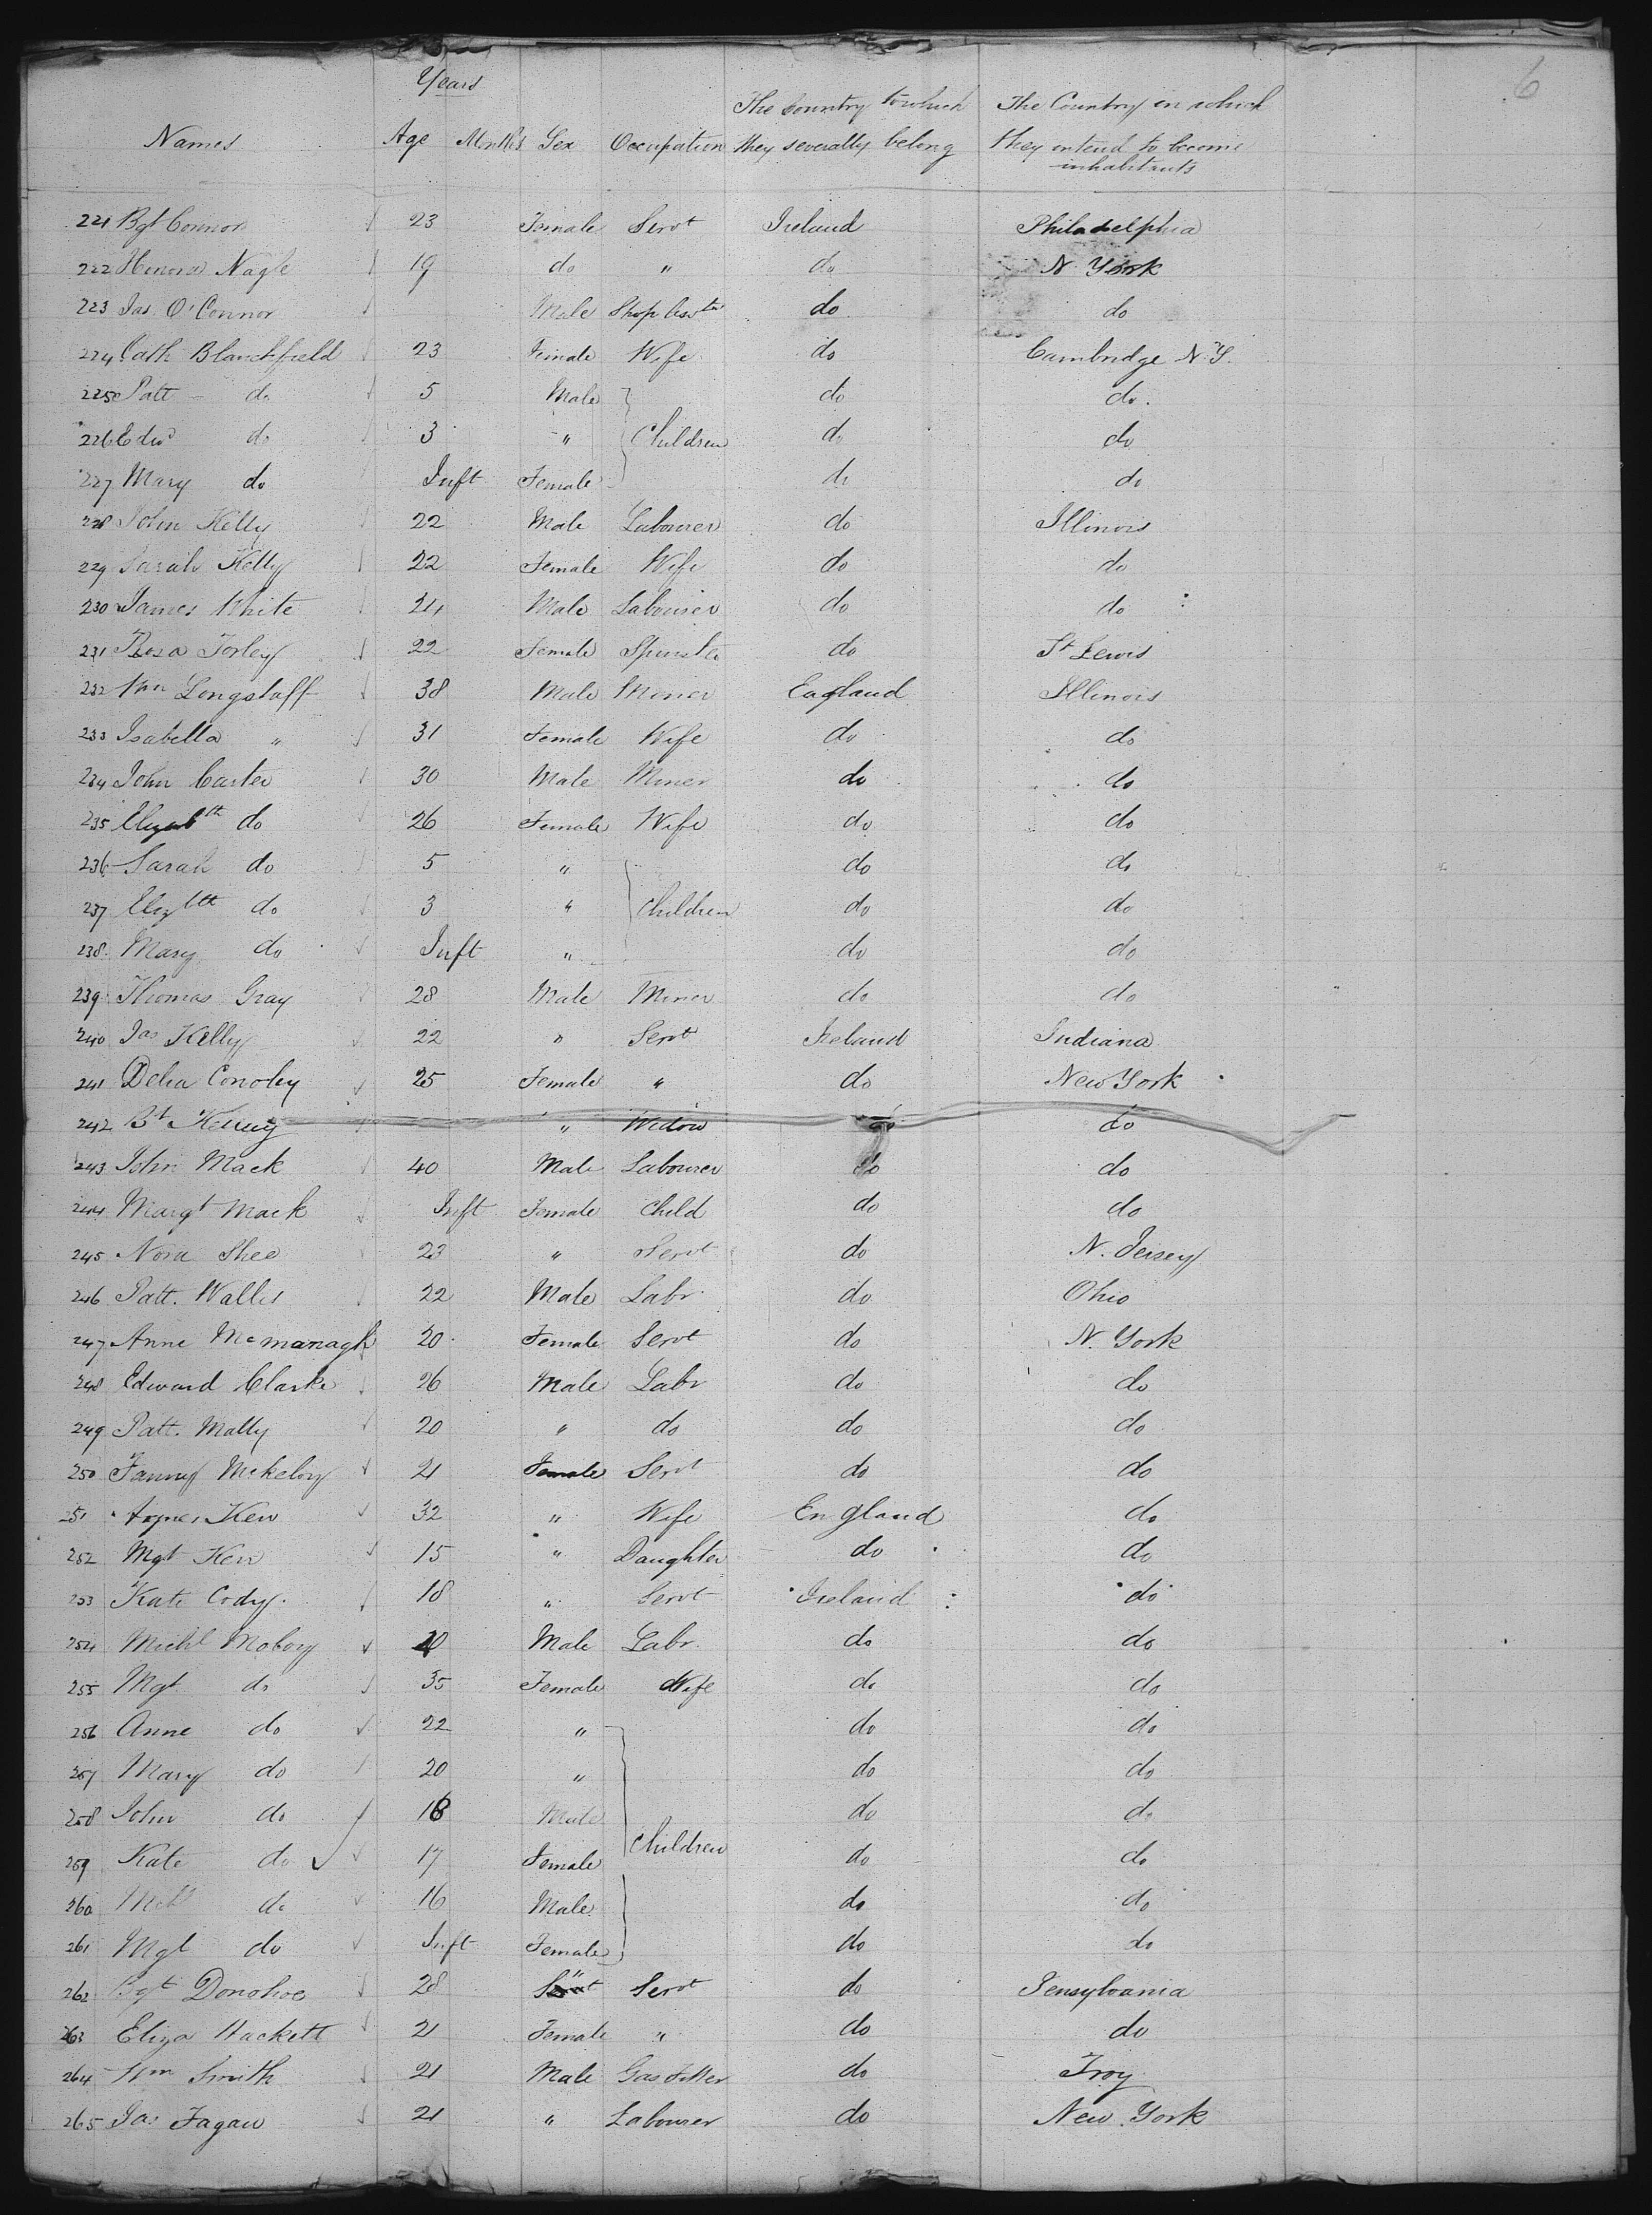 6
Years
Names Age Months Sex Occupation The Country to which they severally belong The Country in which they intend to become inhabitants
221 Bgt Connor 23 Female Servt Ireland Philadelphia
222 Honora Nagle 19 do " do N. York
223 Jas. O'Connor Male Shop do do
224 Cath Blanchfield 23 Female Wife do Cambridge N.Y.
225 Patt do 5 Male do do.
226 Edwd do 3 " Children do do
227 Mary do Inft Female do do
228 John Kelly 22 Male Labourer do Illinois
229 Sarah Kelly 22 Female Wife do do
230 James White 24 Male Labourer do do
231 Rosa Torley 22 Female Spinster do St Lewis
232 Wm Longstaff 38 Male Miner England Illinois
233 Isabella " 31 Female Wife do do
234 John Carter 30 Male Miner do do
235 Elizabth do 26 Female Wife do do
236 Sarah do 5 " do do
237 Elizbth do 3 " Children do do
238 Mary do Inft " do do
239 Thomas Gray 28 Male Miner do do
240 Jas Kelly 22 " Servt Ireland Indiana
241 Delia Conoley 25 Female " do New York
242 Bt " Widow do do
243 John Mack 40 Male Labourer do do
244 Margt Mack Inft Female Child do do
245 Nora Shee 23 " Servt do N. Jersey
246 Patt. Walles 22 Male Labr. do Ohio
247 Anne McManagh 20 Female Servt do N. York
248 Edward Clarke 26 Male Labr do do
249 Patt. Mally 20 " do do do
250 Fanny McKelvy 21 Female Servt do do
251 Agnes Kew 32 " Wife England do
252 Mgt Kew 15 " Daughter do do
253 Kate Cody. 18 " Servt Ireland do
254 Michl Maboy 40 Male Labr. do do
255 Mgt do 35 Female Wife do do
256 Anne do 22 " do do
257 Mary do 20 " do do
258 John do 18 Male do do
259 Kate do 17 Female Children do do
260 do 16 Male do do
261 Mgt do Inft Female do do
262 Bgt Donohoe 28 " Servt do Pensylvania
263 Eliza Hackett 21 Female " do do
264 Wm Smith 21 Male Gas Fitter do Troy
265 Jas Fagan 21 " Labourer do New York